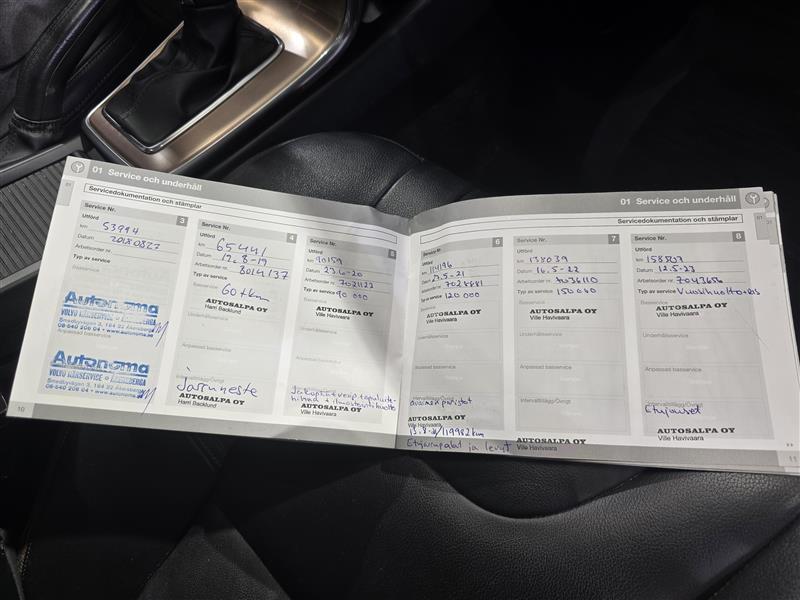 01 Service och underhåll
Servicedokumentation och stämplar
Service Nr. 3
Utförd
km 53994
Datum 20180827
Arbetsorder nr.
Typ av service
Basservice
Autonoma
VOLVO BÄRSERVICE - ÅKERSBERGA
Smedbyvägen 3, 184 32 Åkersberga
08-540 206 04 • www.autonoma.se
Anpassad basservice
Autonoma
VOLVO BÄRSERVICE - ÅKERSBERGA
Smedbyvägen 3, 184 32 Åkersberga
08-540 206 04 • www.autonoma.se
10
Service Nr. 4
Utförd
km 65441
Datum 12.8-19
Arbetsorder nr. 8014137
Typ av service
60 tkm
Basservice
AUTOSALPA OY
Harri Backlund
Underhållsservice
Anpassad basservice
Intervalltillägg/Övrigt
Jarruneste
AUTOSALPA OY
Harri Backlund
Service Nr. 5
Utförd
km 90159
Datum 23.6-20
Arbetsorder nr. 7021123
Typ av service 90 000
Basservice
AUTOSALPA OY
Ville Havivaara
Underhållsservice
Anpassad basservice
AUTOSALPA OY
Ville Havivaara
01 Service och underhåll
Servicedokumentation och stämplar
01
Service Nr. 6
Utförd
km 114196
Datum 19.5-21
Arbetsorder nr.
Typ av service 120 000
Basservice
AUTOSALPA OY
Ville Havivaara
Underhållsservice
Anpassad basservice
avaimen paristot
AUTOSALPA OY
Ville Havivaara
119982 km
Etujarrupalat ja levyt
Service Nr. 7
Utförd
km 138039
Datum 16.5-22
Arbetsorder nr. 7036110
Typ av service 150 000
Basservice
AUTOSALPA OY
Ville Havivaara
Underhållsservice
Anpassad basservice
Intervalltillägg/Övrigt
AUTOSALPA OY
Ville Havivaara
Service Nr. 8
Utförd
km 158507
Datum 12.5-23
Arbetsorder nr. 7043656
Typ av service Vuosihuolto
Basservice
AUTOSALPA OY
Ville Havivaara
Underhållsservice
Anpassad basservice
Intervalltillägg/Övrigt
Etujouset
AUTOSALPA OY
Ville Havivaara
11